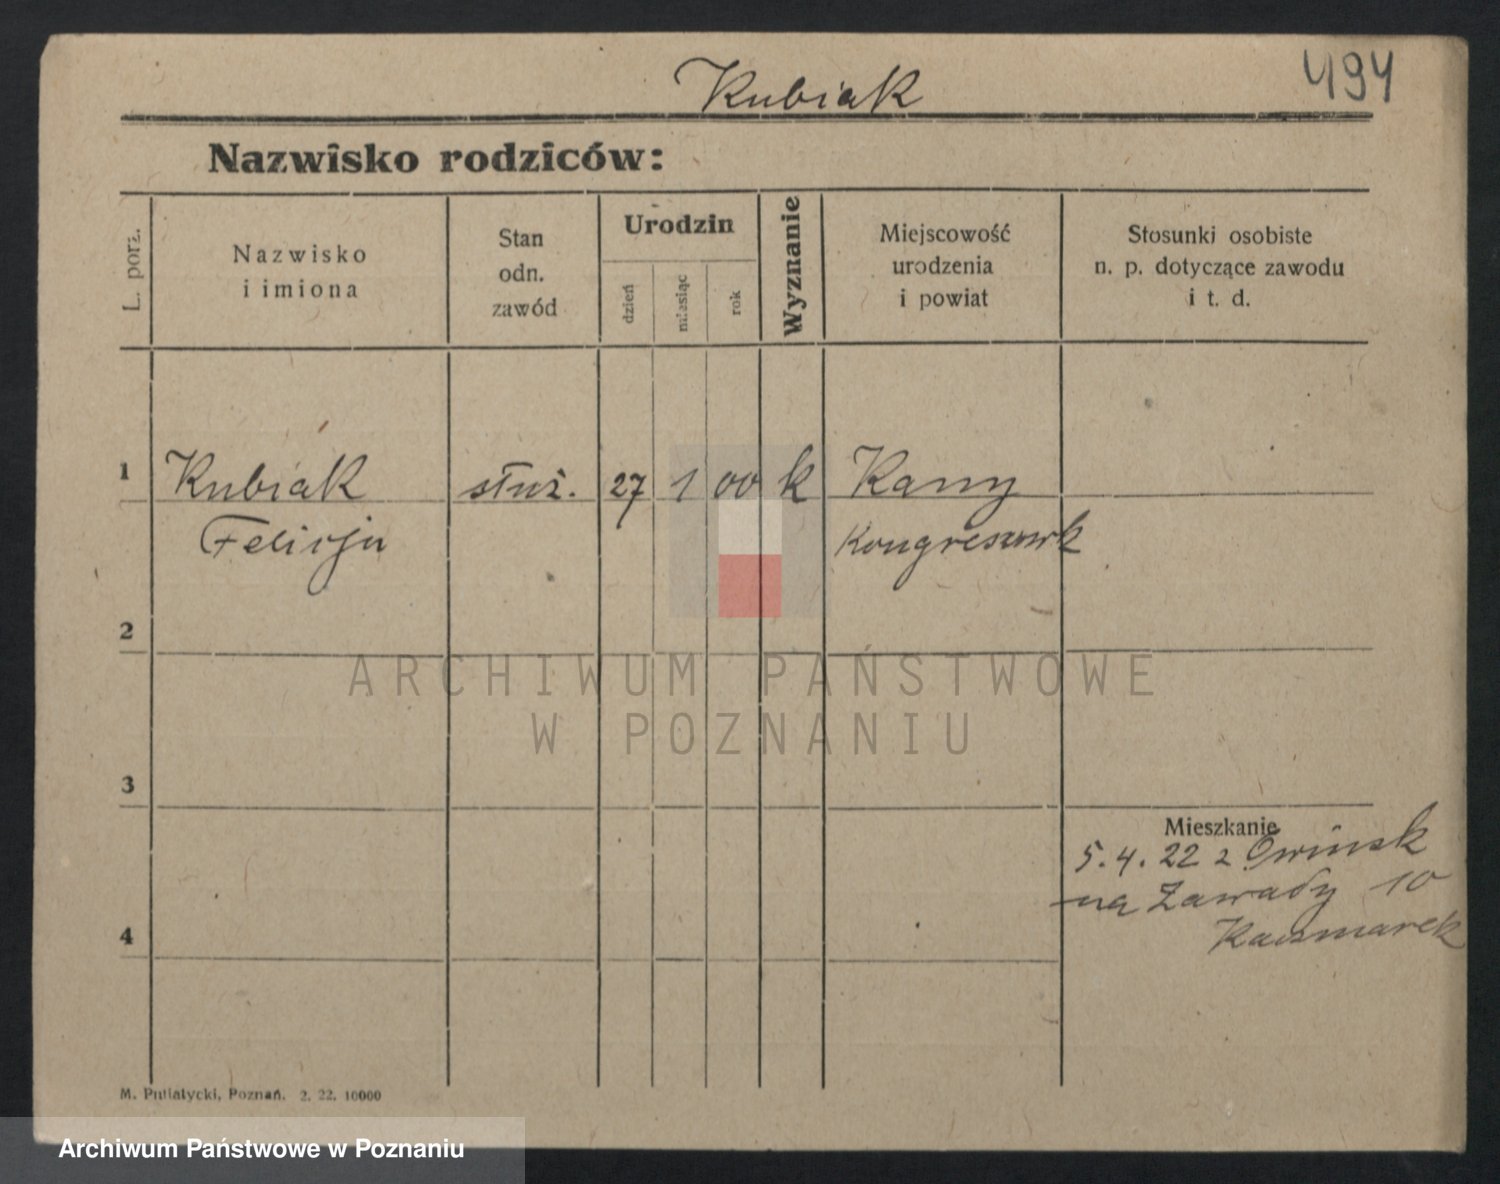 Kubiak
494
Nazwisko rodziców:
L. porz.
Nazwisko
i imiona
Stan
odn.
zawód
Urodzin
dzień
miesiąc
rok
Wyznanie
Miejscowość
urodzenia
i powiat
Stosunki osobiste
n. p. dotyczące zawodu
i t. d.
1
Kubiak
Felicja
służ.
27
1
00
k
Kongresowk
2
3
4
Mieszkanie
5.4.22 z Owinsk
na Zawady 10
Kaczmarek
M. Putiatycki, Poznań. 2. 22. 10000
ARCHIWUM PAŃSTWOWE
W POZNANIU
Archiwum Państwowe w Poznaniu